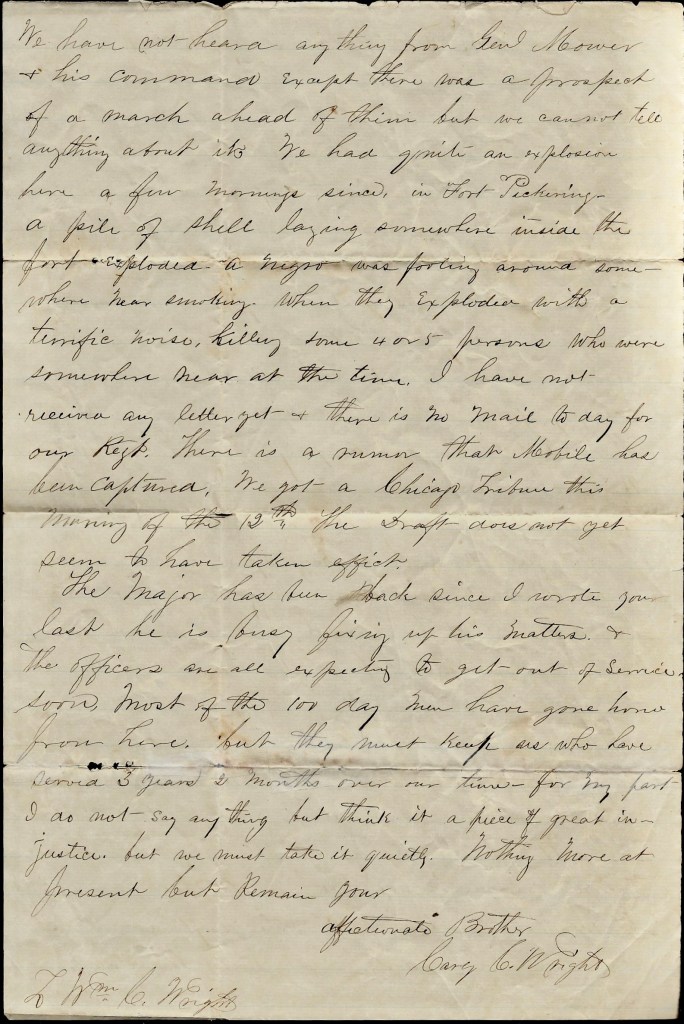 We have not heard anything from Genl Mower
& his command except there was a prospect
of a march ahead of them but we cannot tell
anything about it. We had quite an explosion
here a few mornings since, in Fort Pickering-
a pile of shell laying somewhere inside the
fort exploded- a negro was fooling around some-
where near smoking. when they exploded with a
terrific noise, killing some 4 or 5 persons who were
somewhere near at the time. I have not
received any letter yet & there is no mail to day for
our Regt. There is a rumor that Mobile has
been captured. We got a Chicago Tribune this
morning of the 12th, The Draft does not yet
seem to have taken effect.
The Major has been back since I wrote you
last he is busy fixing up his matters. &
the officers are all expecting to get out of service
soon. Most of the 100 day men have gone home
from here. but they must keep us who have
served 3 years 2 months over our time- for my part
I do not say anything but think it a piece of great in-
justice. but we must take it quietly. Nothing more at
present but Remain your
affectionate Brother
Carey C. Wright
To Wm. C. Wright